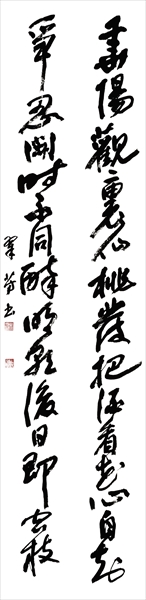 華陽觀裏仙桃發把酒看花心自知
爭忍開時不同醉明朝後日即空枝
書